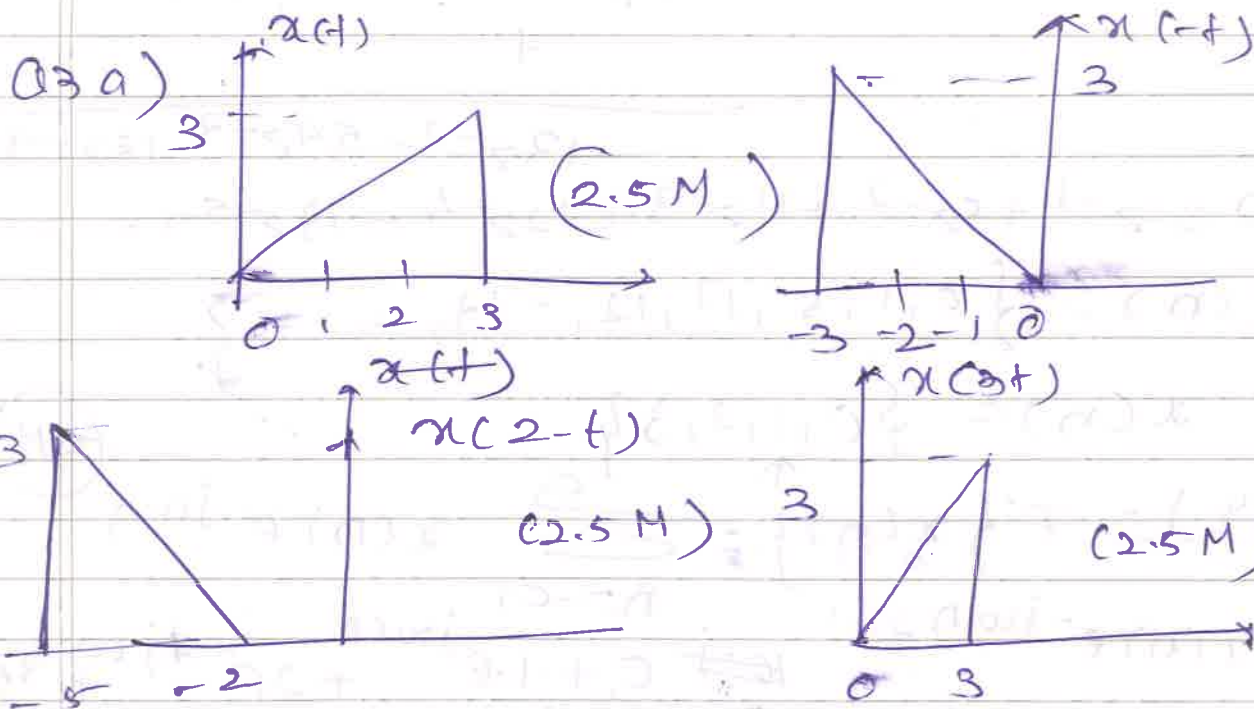 Q3 a)
x(t)
3
(2.5 M)
0 1 2 3
x(-t)
3
-3 -2 -1 0
x(t)
x(2-t)
3
(2.5 M)
-5 -2
x(3t)
3
(2.5 M)
0 3